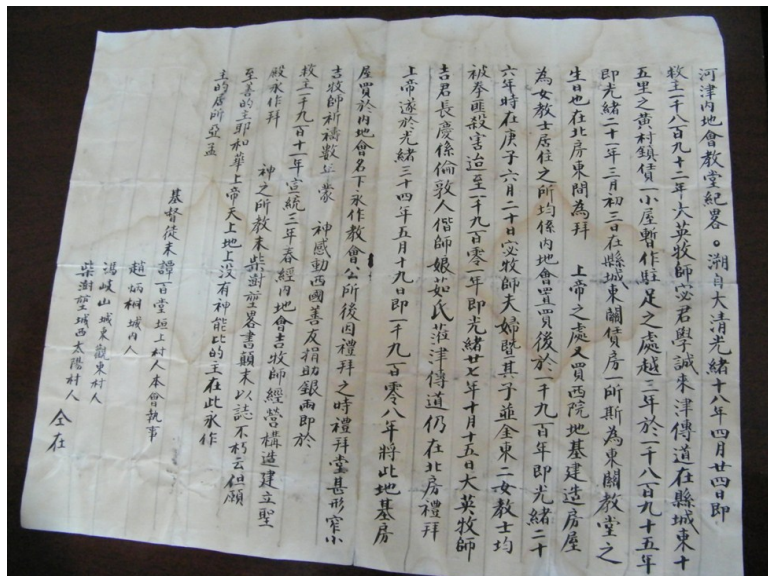 河津內地會教堂紀畧。溯自大清光緒十八年四月廿四日即
救主一千八百九十二年大英牧師宓君學誠來津傳道在縣城東十
五里之黄村鎮賃一小屋暫作駐足之處越三年於一千八百九十五年
即光緒二十一年三月初三日在縣城東關賃房一所斯為東關教堂之
生日也在北房東間為拜 上帝之處又買西院地基建造房屋
為女教士居住之所均係內地會置買後於一千九百年即光緒二十
六年時在庚子六月二十日宓牧師夫婦暨其子並金東二女教士均
被拳匪殺害迨至一千九百零一年即光緒廿七年十月十五日大英牧師
吉君長慶係倫敦人偕師娘茹氏蒞津傳道仍在北房禮拜
上帝遂於光緒三十四年五月十九日即一千九百零八年將此地基房
屋買於內地會名下永作教會公所後因禮拜之時禮拜堂甚形窄小
吉牧師祈禱數年蒙 神感動西國善友捐助銀兩即於
救主一千九百十一年宣統三年春經內地會吉牧師經營構造建立聖
殿永作拜 神之所教末柴澍璽畧書顛末以誌不朽云但願
至善的主耶和華上帝天上地上沒有神能比的主在此永作
主的居所亞孟
基督徒末
譚百堂垣上村人本會執事
趙炳桐城內人
馮岐山城東觀東村人
柴澍璽城西太陽村人
仝在